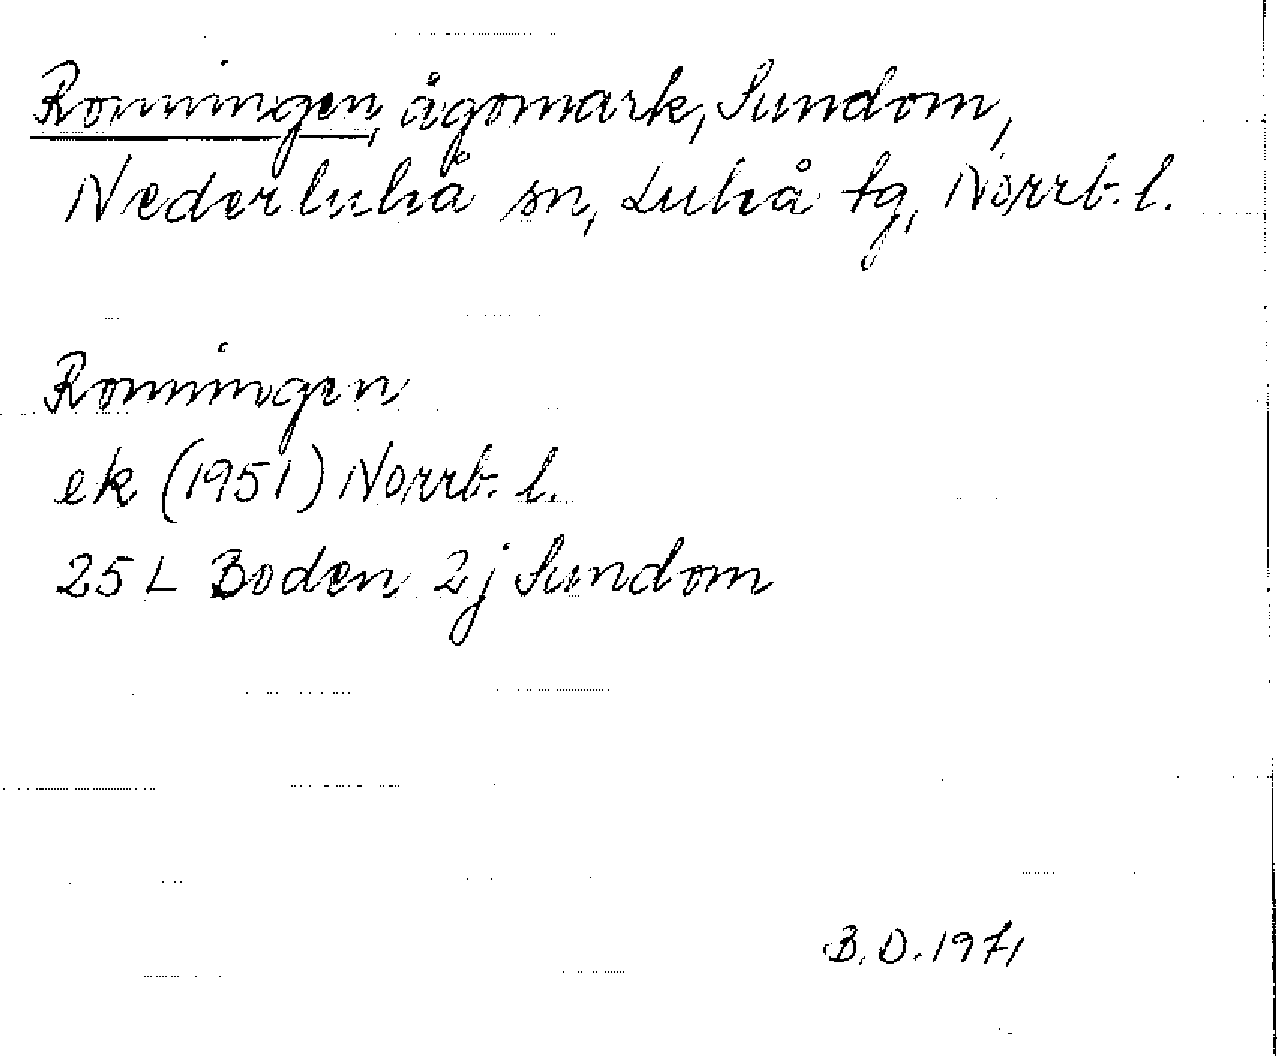 Ronningen, ägomark, Sundom,
Nederluleå sn, Luleå tg, Norrb. l.
Ronningen
ek (1951) Norrb. l.
25 L Boden 2j Sundom
B.D. 1971